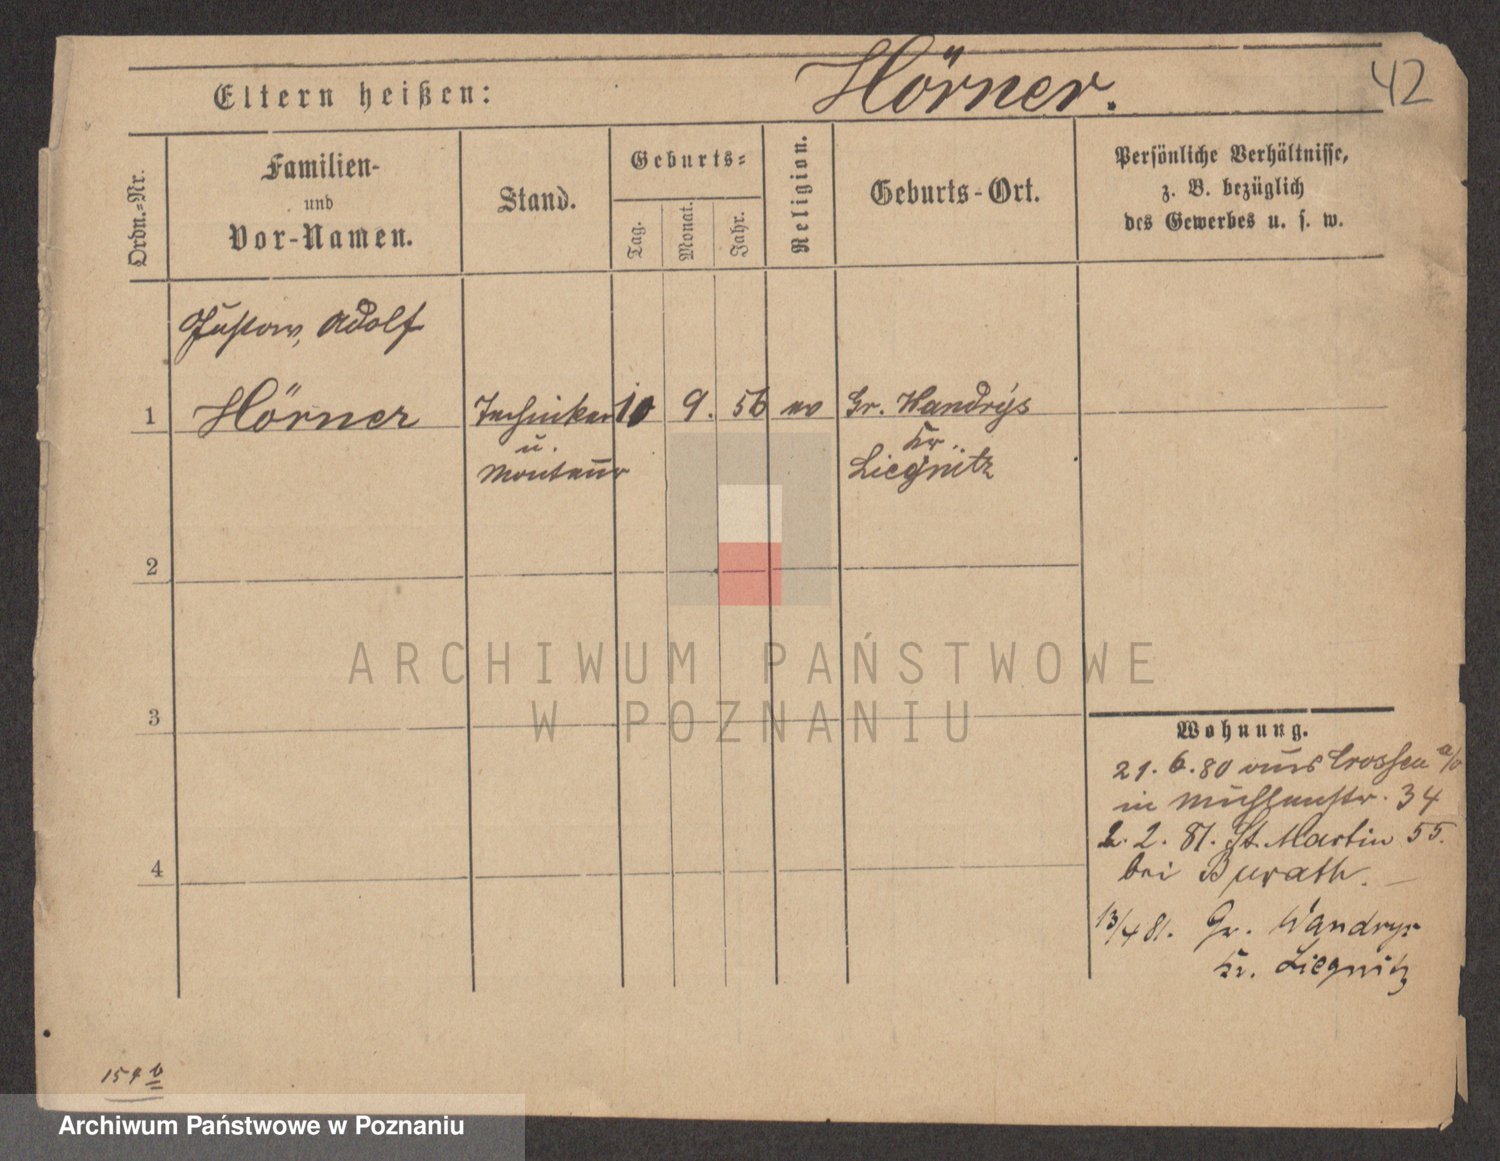 42
Eltern heißen: Hörner.
Ordn.-Nr.
Familien-
und
Vor-Namen.
Stand.
Geburts-
Tag.
Monat.
Jahr.
Religion.
Geburts-Ort.
Persönliche Verhältnisse,
z. B. bezüglich
des Gewerbes u. s. w.
Gustav, Adolf
1 Hörner Techniker 10 9. 56 ev Gr. Wandrys
u. Kr.
Monteur Liegnitz
2
3
4
Wohnung.
21. 6. 80 aus Crossen a/o
in Mühlenstr. 34
2. 2. 81. St. Martin 55.
bei
13/4 81. Gr. Wandrys
Kr. Liegnitz
154 b
ARCHIWUM PAŃSTWOWE
W POZNANIU
Archiwum Państwowe w Poznaniu